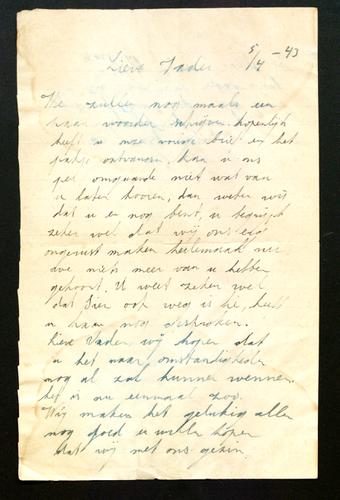 Lieve Vader 5/4 -43
We zullen nog maals een
paar woorden schrijven. hopenlijk
heeft u onze vorige brief en het
pakje ontvangen, kan u ons
per omgaande niet wat van
u laten hooren, dan weten wij
dat u er nog bent, u begrijpt
zeker wel dat wij ons erg
ongerust maken heelemaal nu
we niets meer van u hebben
gehoort. U weet zeker wel
dat Sier ook weg is hé, heeft
u haar nog gesproken.
Lieve Vader wij hopen dat
u het naar omstandigheden
nog al zal kunnen wennen.
het is nu eenmaal zoo.
Wij maken het gelukig allen
nog goed u willen hopen
dat wij met ons gezin